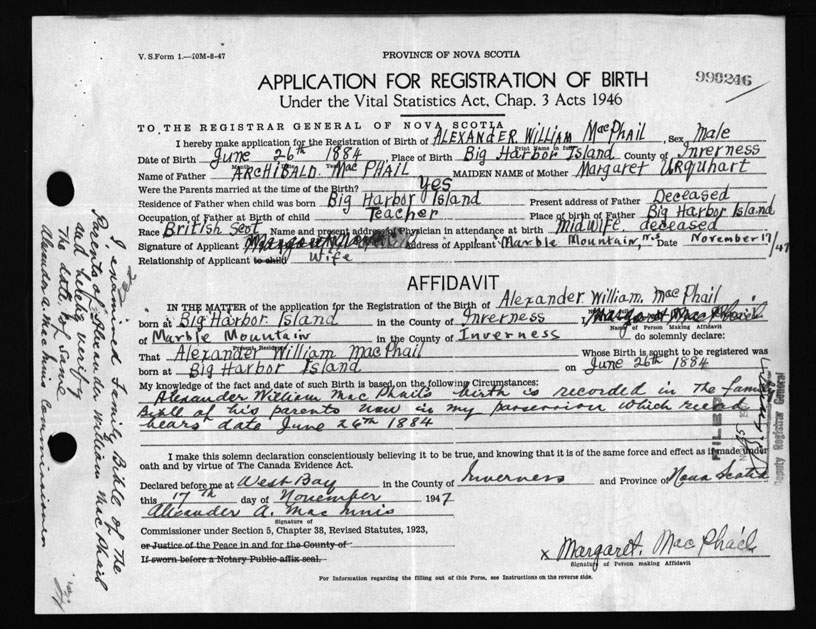 V. S. Form 1.—10M-8-47
PROVINCE OF NOVA SCOTIA
990246
APPLICATION FOR REGISTRATION OF BIRTH
Under the Vital Statistics Act, Chap. 3 Acts 1946
TO THE REGISTRAR GENERAL OF NOVA SCOTIA
I hereby make application for the Registration of Birth of ALEXANDER WILLIAM MacPHAIL Sex Male
Print Name in full
Date of Birth June 26th 1884 Place of Birth Big Harbor Island County of Inverness
Name of Father ARCHIBALD MacPHAIL MAIDEN NAME of Mother Margaret URQUHART
Were the Parents married at the time of the Birth? Yes
Residence of Father when child was born Big Harbor Island Present address of Father Deceased
Occupation of Father at Birth of child Teacher Place of birth of Father Big Harbor Island
Race British Scot Name and present address of Physician in attendance at birth Midwife deceased
Signature of Applicant Address of Applicant Marble Mountain, N.S Date November 17/47
Relationship of Applicant to child Wife
AFFIDAVIT
IN THE MATTER of the application for the Registration of the Birth of Alexander William MacPhail
born at Big Harbor Island in the County of Inverness I, Margaret MacPhail
Name of Person Making Affidavit
of Marble Mountain in the County of Inverness do solemnly declare:
Present Residence
That Alexander William MacPhail Whose Birth is sought to be registered was
born at Big Harbor Island on June 26th 1884
My knowledge of the fact and date of such Birth is based on the following Circumstances:
Alexander William MacPhail's birth is recorded in the family
Bible of his parents now in my possession which record
bears date June 26th 1884
I make this solemn declaration conscientiously believing it to be true, and knowing that it is of the same force and effect as if made under
oath and by virtue of The Canada Evidence Act.
Declared before me at West Bay in the County of Inverness and Province of Nova Scotia
this 17th day of November 1947
Alexander A. MacInnis
Signature of
Commissioner under Section 5, Chapter 38, Revised Statutes, 1923,
or Justice of the Peace in and for the County of
If sworn before a Notary Public affix seal.
x Margaret MacPhail
Signature of Person making Affidavit
For Information regarding the filling out of this Form, see Instructions on the reverse side.
I examined Family Bible of The
Parents of Alexander William MacPhail
and hereby verify
The date of same
Alexander A. MacInnis Commissioner
FILED
Deputy Registrar General